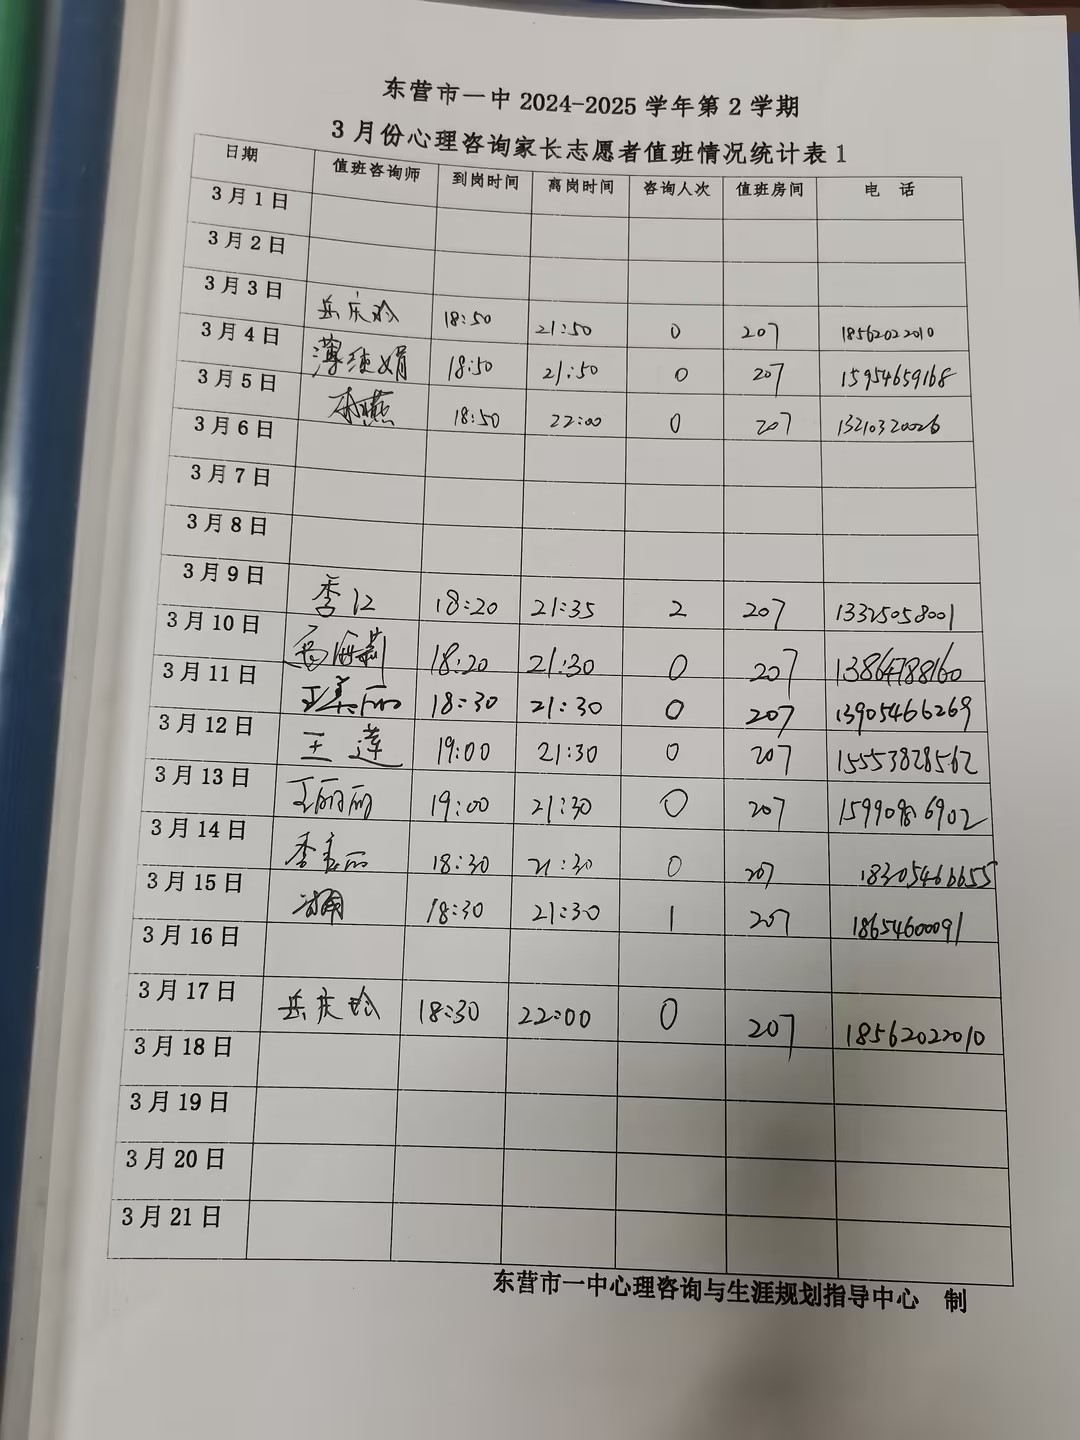 东营市一中 2024-2025 学年第 2 学期
3 月份心理咨询家长志愿者值班情况统计表 1
日期 值班咨询师 到岗时间 离岗时间 咨询人次 值班房间 电 话
3 月 1 日
3 月 2 日
3 月 3 日 岳庆玲 18:50 21:50 0 207 18562022010
3 月 4 日 薄纯娟 18:50 21:50 0 207 15954659168
3 月 5 日 18:50 22:00 0 207 13210320026
3 月 6 日
3 月 7 日
3 月 8 日
3 月 9 日 季江 18:20 21:35 2 207 13325058001
3 月 10 日 18:20 21:30 0 207 13864788160
3 月 11 日 王美丽 18:30 21:30 0 207 13905466269
3 月 12 日 王莲 19:00 21:30 0 207 15553828562
3 月 13 日 王丽丽 19:00 21:30 0 207
3 月 14 日 18:30 21:30 0 207 18305466655
3 月 15 日 18:30 21:30 1 207 18654600091
3 月 16 日
3 月 17 日 岳庆玲 18:30 22:00 0 207 18562022010
3 月 18 日
3 月 19 日
3 月 20 日
3 月 21 日
东营市一中心理咨询与生涯规划指导中心 制